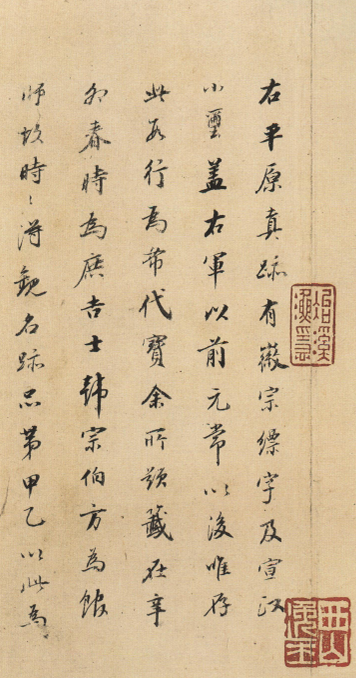 右平原真跡有徽宗縹字及宣政
小璽蓋右軍以前元常以後唯存
此數行為希代寶余所題籤在辛
卯春時為庶吉士韓宗伯方為館
師故時〻得觀名跡品第甲乙以此為